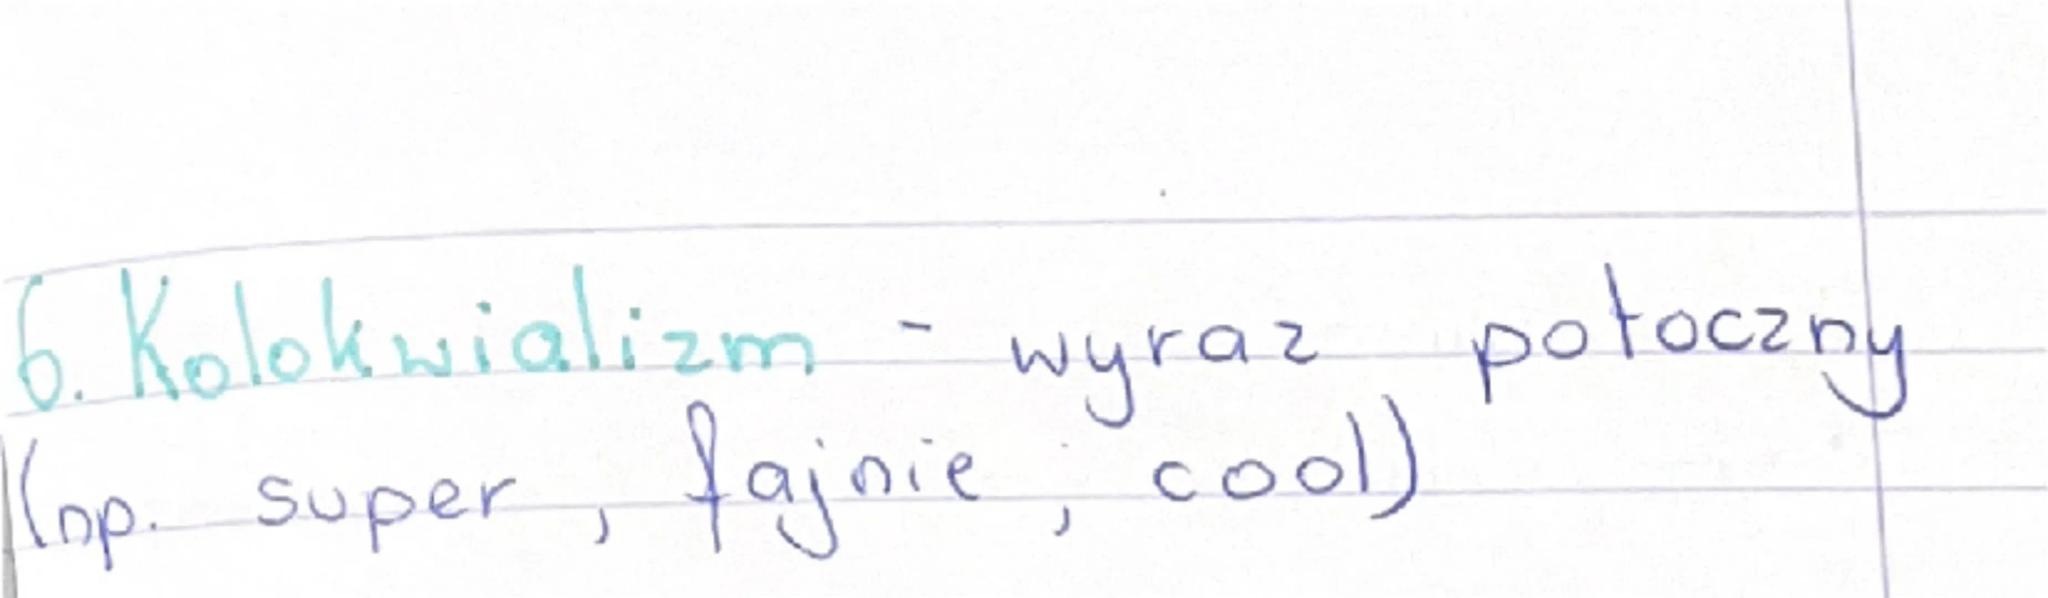 6. Kolokwializm - wyraz potoczny
(np. super, fajnie, cool)